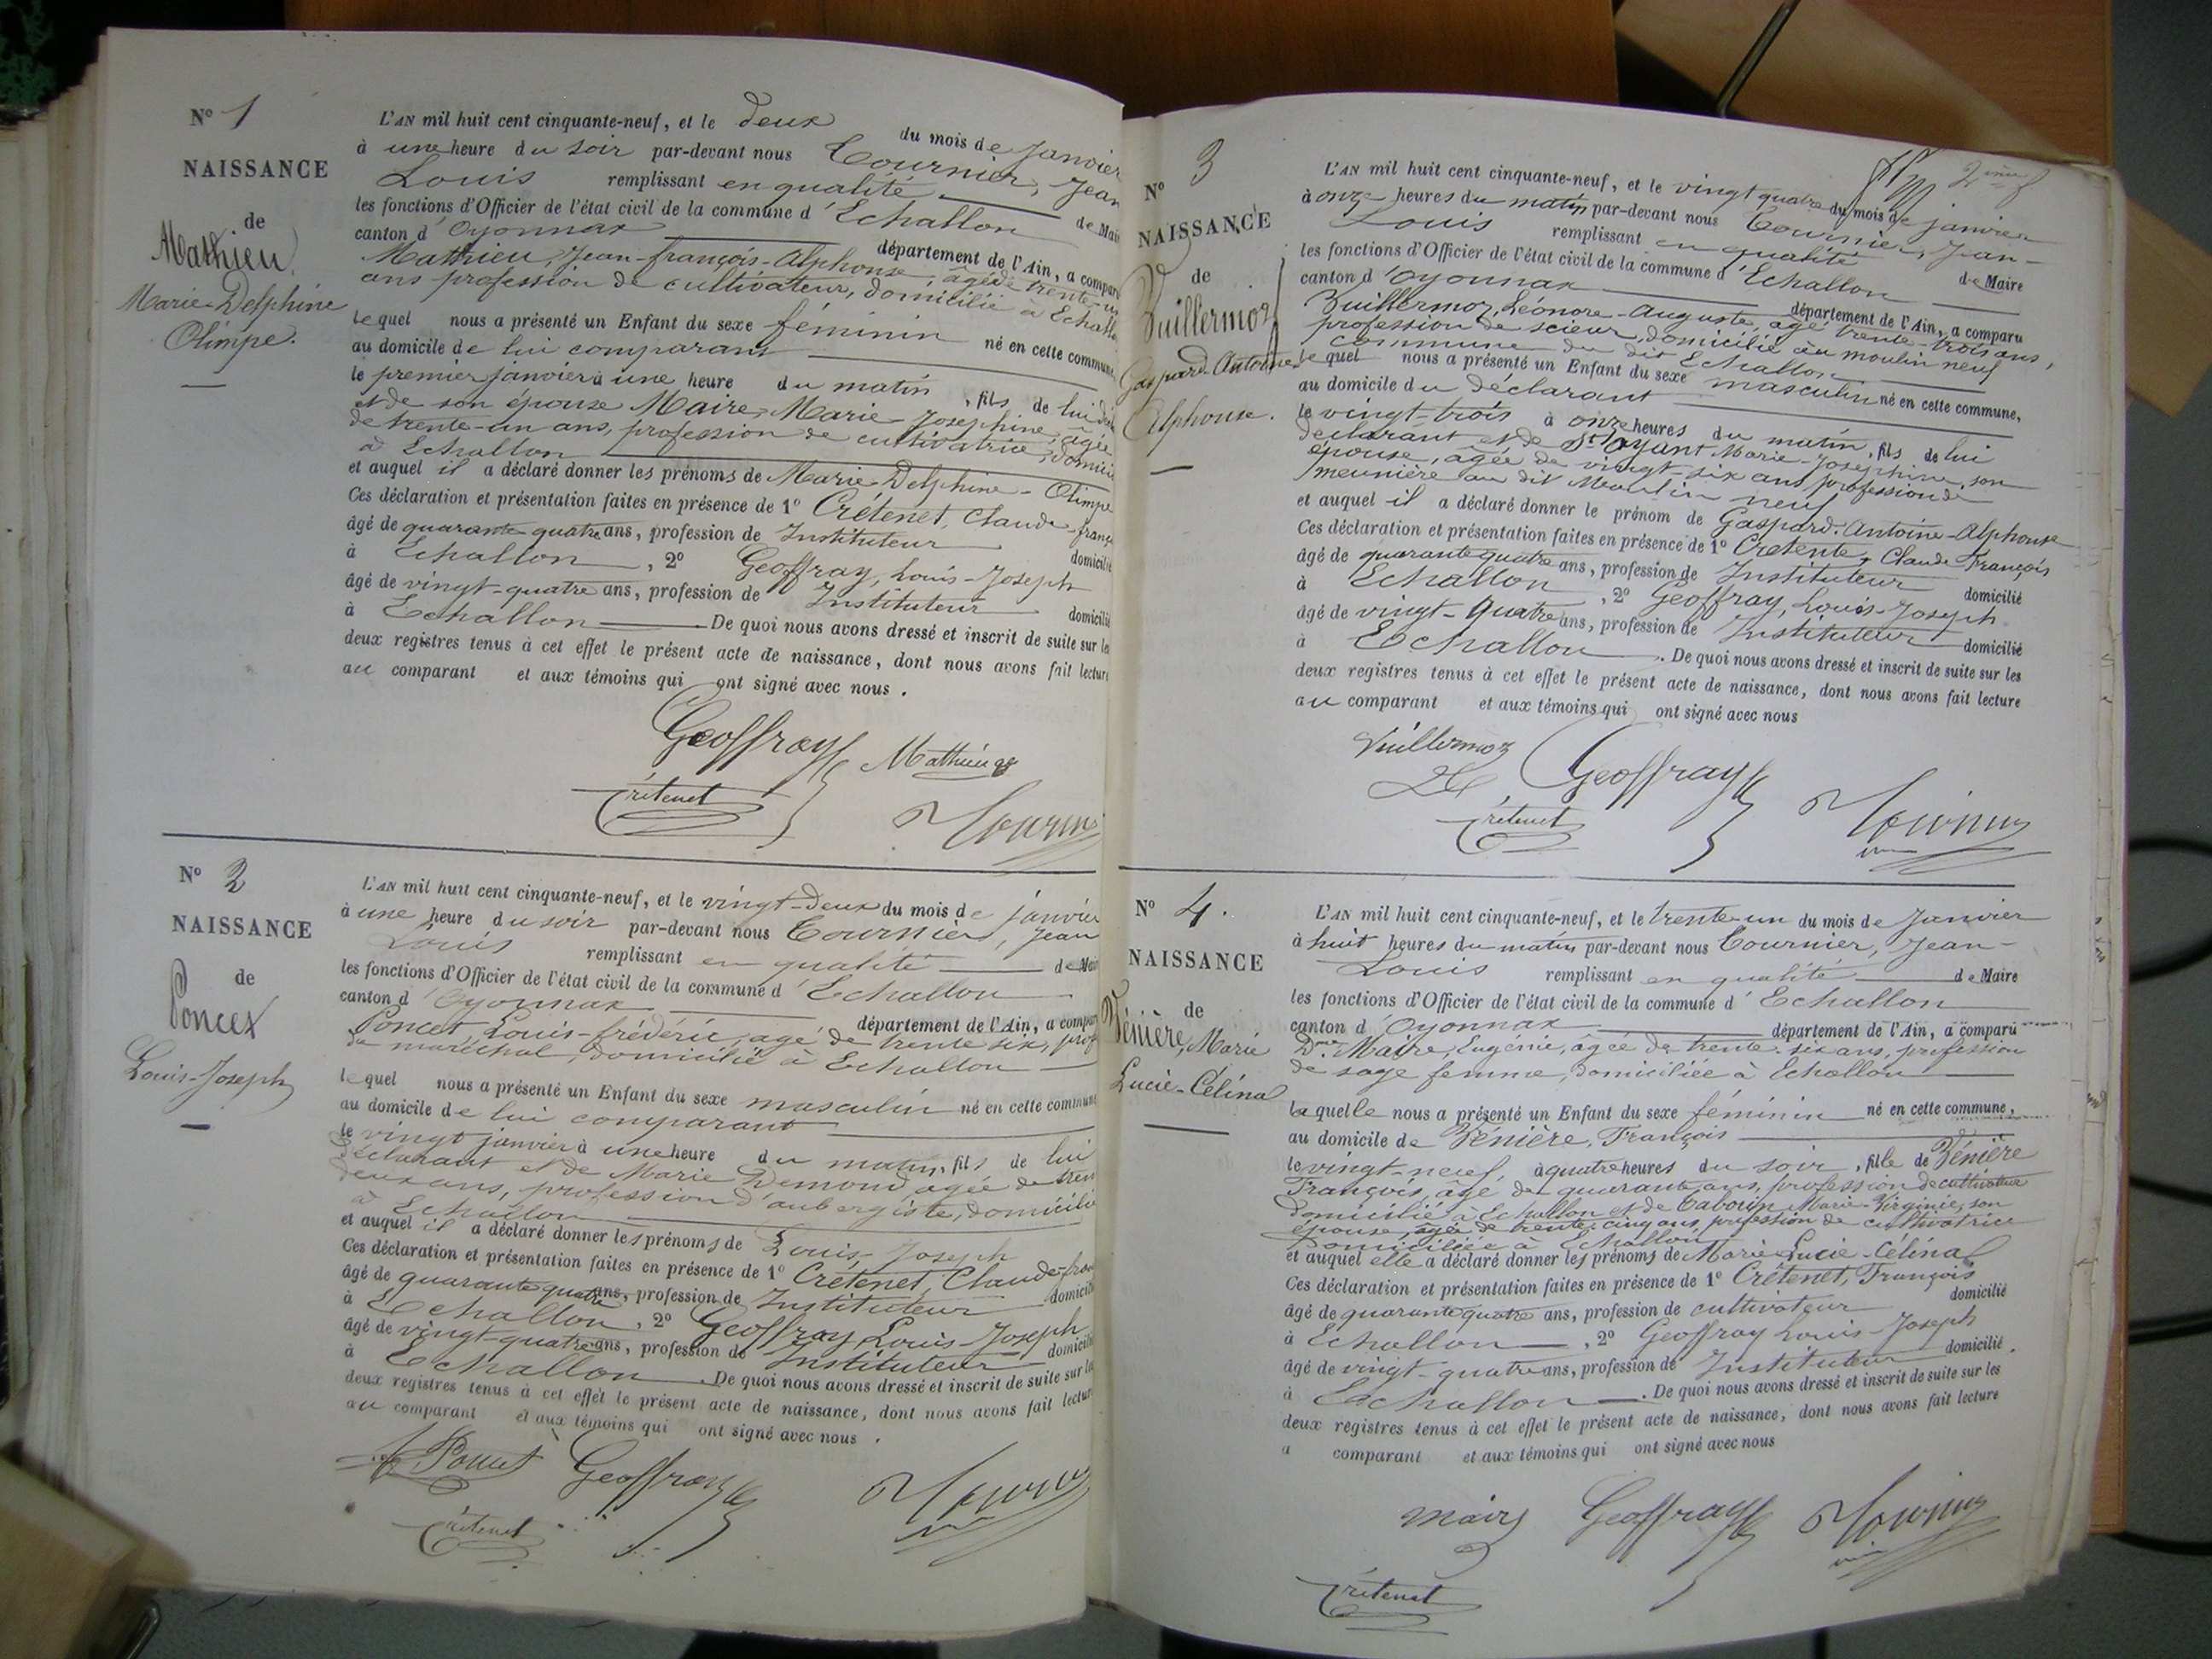 N° 1
NAISSANCE
de
Mathieu
Marie-Delphine
Olimpe.
L'AN mil huit cent cinquante-neuf, et le deux du mois de Janvier
à une heure du soir par-devant nous Tournier, Jean
Louis remplissant en qualité de Mai
les fonctions d'Officier de l'état civil de la commune d'Echallon
canton d'Oyonnax département de l'Ain, a compar
Mathieu, Jean-françois-Alphonse, âgé de trente-un
ans profession de cultivateur, domicilié à Echall
lequel nous a présenté un Enfant du sexe féminin né en cette commune,
au domicile de lui comparant
le premier janvier à une heure du matin, fils de lui
et de son épouse Maire, Marie-Josephine, âgée
de trente-un ans, profession de cultivatrice, domici
à Echallon
et auquel il a déclaré donner les prénoms de Marie-Delphine-Olimpe
Ces déclaration et présentation faites en présence de 1° Crétenet, Claude franç
âgé de quarante quatre ans, profession de Instituteur domicilié
à Echallon, 2° Geoffray, Louis-Joseph
âgé de vingt-quatre ans, profession de Instituteur domicilié
à Echallon De quoi nous avons dressé et inscrit de suite sur les
deux registres tenus à cet effet le présent acte de naissance, dont nous avons fait lecture
au comparant et aux témoins qui ont signé avec nous.
Geoffray Mathieu
Crétenet Tournier
N° 2
NAISSANCE
de
Poncet
Louis-Joseph
L'AN mil huit cent cinquante-neuf, et le vingt-deux du mois de janvier
à une heure du soir par-devant nous Tournier, Jean
Louis remplissant en qualité de Mai
les fonctions d'Officier de l'état civil de la commune d'Echallon
canton d'Oyonnax département de l'Ain, a compar
Poncet, Louis-frédéric, âgé de trente six, prof
de maréchal, domicilié à Echallon
lequel nous a présenté un Enfant du sexe masculin né en cette commune
au domicile de lui comparant
le vingt janvier à une heure du matin, fils de lui
déclarant et de Marie Demond, agée de tren
deux ans, profession d'aubergiste, domicilié
à Echallon
et auquel il a déclaré donner les prénoms de Louis, Joseph
Ces déclaration et présentation faites en présence de 1° Crétenet, Claude-fran
âgé de quarante quatre ans, profession de Instituteur domicilié
à Echallon, 2° Geoffray, Louis-Joseph
âgé de vingt-quatre ans, profession de Instituteur domicilié
à Echallon. De quoi nous avons dressé et inscrit de suite sur les
deux registres tenus à cet effet le présent acte de naissance, dont nous avons fait lecture
au comparant et aux témoins qui ont signé avec nous.
Poncet Geoffray Tournier
Crétenet
N° 3
NAISSANCE
de
Vuillermoz
Gaspard-Antoine
Alphonse.
L'AN mil huit cent cinquante-neuf, et le vingt quatre du mois de janvier
à onze heures du matin par-devant nous Tournier, Jean-
Louis remplissant en qualité de Maire
les fonctions d'Officier de l'état civil de la commune d'Echallon
canton d'Oyonnax département de l'Ain, a comparu
Vuillermoz, Léonore-Auguste, âgé trente-trois ans,
profession de scieur, domicilié au moulin neuf
commune du dit Echallon
lequel nous a présenté un Enfant du sexe masculin né en cette commune,
au domicile du déclarant
le vingt-trois à onze heures du matin, fils de lui
déclarant et de St Oyant Marie-Josephine, son
épouse, agée de vingt-six ans profession de
meunière au dit Moulin neuf
et auquel il a déclaré donner le prénom de Gaspard-Antoine-Alphonse
Ces déclaration et présentation faites en présence de 1° Cretente, Claude François
âgé de quarante quatre ans, profession de Instituteur domicilié
à Echallon, 2° Geoffray, Louis-Joseph
âgé de vingt-quatre ans, profession de Instituteur domicilié
à Echallon. De quoi nous avons dressé et inscrit de suite sur les
deux registres tenus à cet effet le présent acte de naissance, dont nous avons fait lecture
au comparant et aux témoins qui ont signé avec nous
Vuillermoz Geoffray
Crétenet Tournier
N° 4.
NAISSANCE
de
Bénière, Marie
Lucie-Célina
L'AN mil huit cent cinquante-neuf, et le trente-un du mois de Janvier
à huit heures du matin par-devant nous Tournier, Jean-
Louis remplissant en qualité de Maire
les fonctions d'Officier de l'état civil de la commune d'Echallon
canton d'Oyonnax département de l'Ain, a comparu
Dme Maire, Eugénie, âgée de trente-six ans, profession
de sage femme, domiciliée à Echallon
laquelle nous a présenté un Enfant du sexe féminin né en cette commune,
au domicile de Bénière, François
le vingt-neuf, à quatre heures du soir, fille de Bénière
François, âgé de quarante ans, profession de cultivateur
domicilié à Echallon et de Tabouin Marie-Virginie, son
épouse, agée de trente-cinq ans, profession de cultivatrice
domiciliée à Echallon
et auquel elle a déclaré donner les prénoms de Marie-Lucie-Célina
Ces déclaration et présentation faites en présence de 1° Crétenet, François
âgé de quarante quatre ans, profession de cultivateur domicilié
à Echallon, 2° Geoffray Louis-Joseph
âgé de vingt-quatre ans, profession de Instituteur domicilié.
à Echallon. De quoi nous avons dressé et inscrit de suite sur les
deux registres tenus à cet effet le présent acte de naissance, dont nous avons fait lecture
a comparant et aux témoins qui ont signé avec nous
Maire Geoffray Tournier
Crétenet